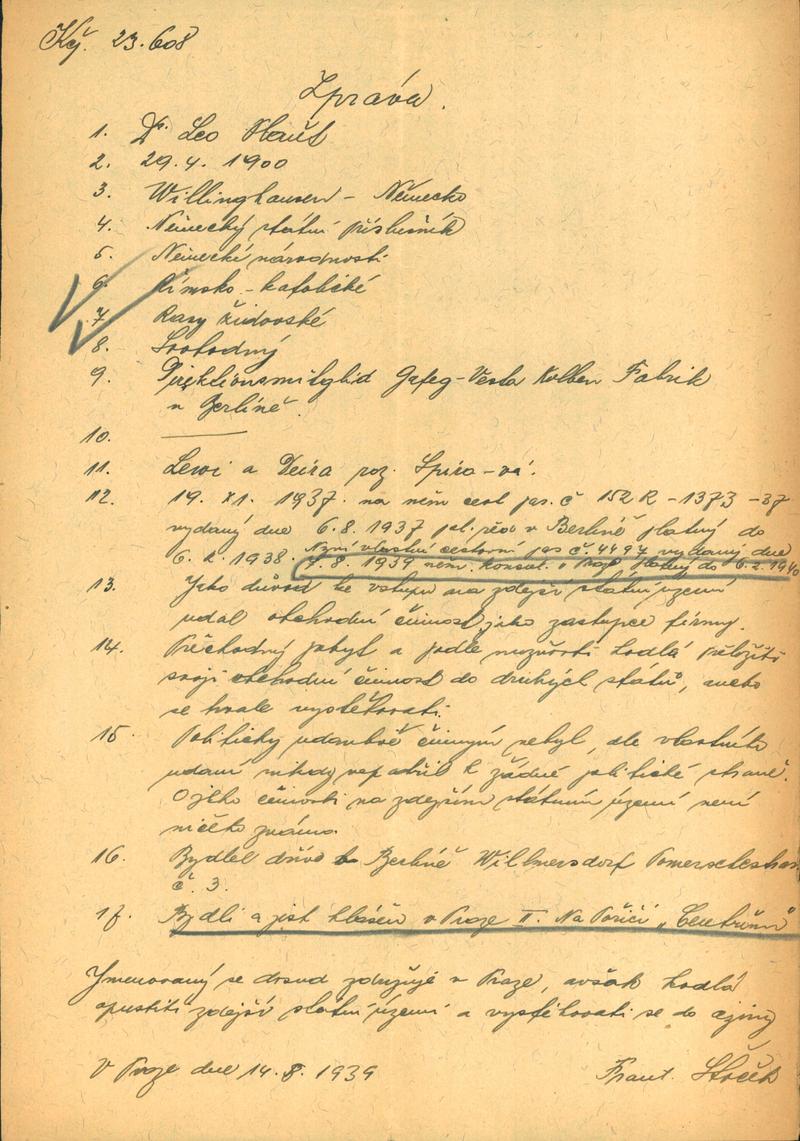 23.608
Zpráva.
1. Dr. Leo
2. 29.4. 1900
3. Willinghausen - Německo
4. Německý státní příslušník
5. Německé národnosti
6. Římsko-katolické
7. Rasy židovské
8. Svobodný
9. Gafeg-Vesta Kolben Fabrik
v Berlíně.
10. ———
11. Lewi a roz. Spiro-vá.
12. 19. XI. 1937 na něm. cest. pas. č 152 R - 1373 - 37
vydaný dne 6.8. 1937 pol. v Berlíně platný do
6. 1938. Nyní vlastní cestovní pas č. 4497 vydaný dne
7.8. 1939 něm. konsul. v Praze platný do 6.2.1940
13. Jako důvod ke vstupu na zdejší státní území
udal obchodní činnost jako zástupce firmy.
14. Přechodný pobyt a podle možnosti hodlá přeložiti
svoji obchodní činnost do druhých států, anebo
se trvale vystěhovati.
15. Politicky činným nebyl, dle vlastního
udání nikdy nepatřil k žádné politické straně.
O jeho činnosti na zdejším státním území není
ničeho známo.
16. Bydlel dříve v Berlíně Willmersdorf
č. 3.
17. Bydlí a jest hlášen v Praze II. Na Poříčí „Centrum“
Jmenovaný se dosud zdržuje v Praze, avšak hodlá
opustiti zdejší státní území a vystěhovati se do ciziny
V Praze dne 14.8. 1939
Frant.